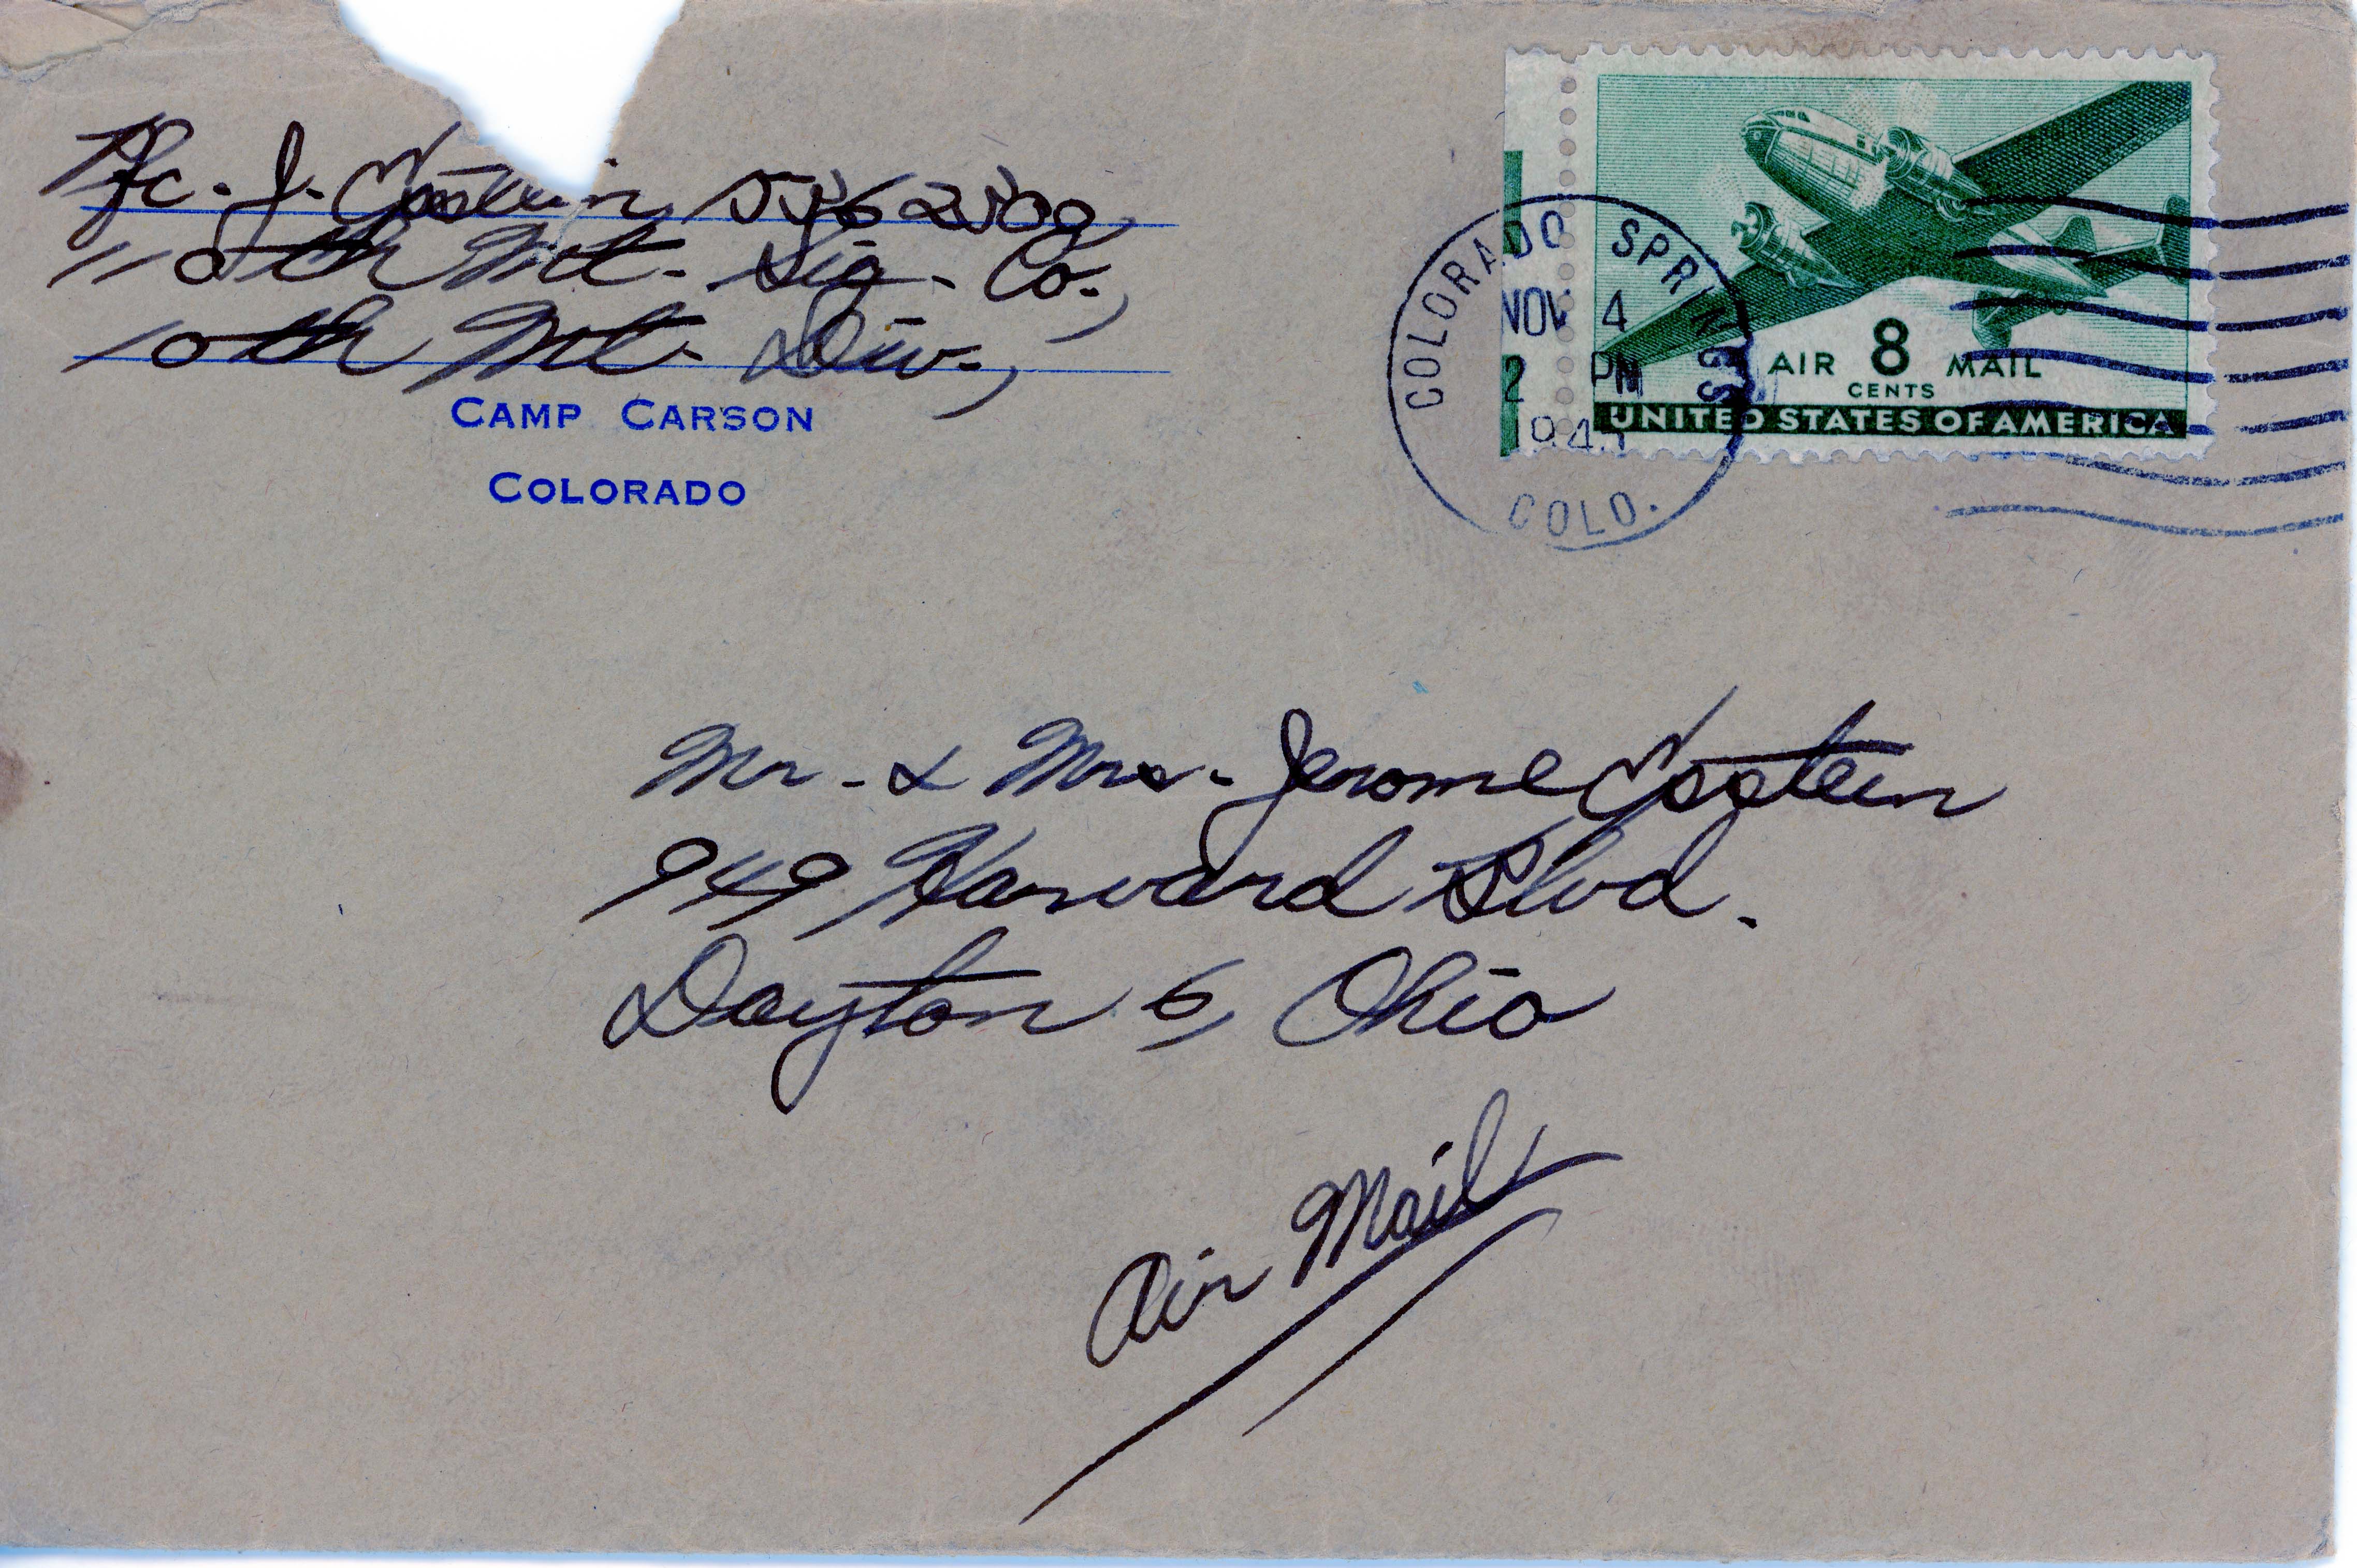 Pfc. J. Epstein
110th Mt. Sig. Co.,
10th Mt. Div.,
CAMP CARSON
COLORADO
COLORADO SPRINGS
NOV 4
2 PM
COLO.
AIR 8 MAIL
CENTS
UNITED STATES OF AMERICA
Mr. & Mrs. Jerome Epstein
949 Harvard Blvd.
Dayton 6, Ohio
Air Mail